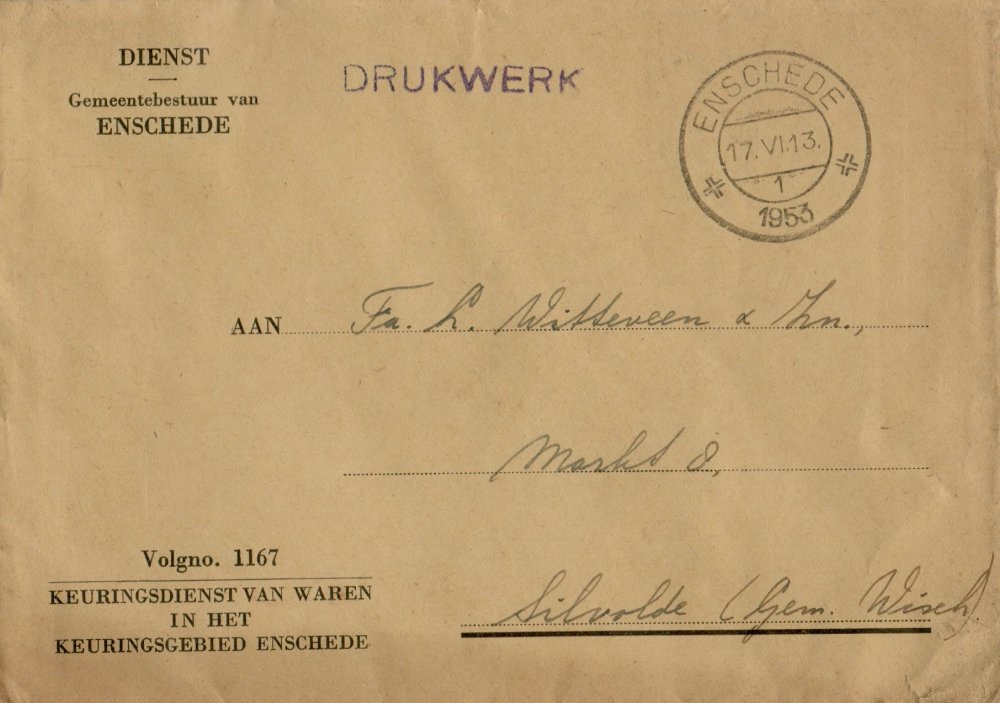 DIENST
Gemeentebestuur van
ENSCHEDE
DRUKWERK
ENSCHEDE
17.VI.13.
1
1953
AAN Fa. H. Witteveen & Zn.,
Markt 8,
Silvolde (Gem. Wisch)
Volgno. 1167
KEURINGSDIENST VAN WAREN
IN HET
KEURINGSGEBIED ENSCHEDE